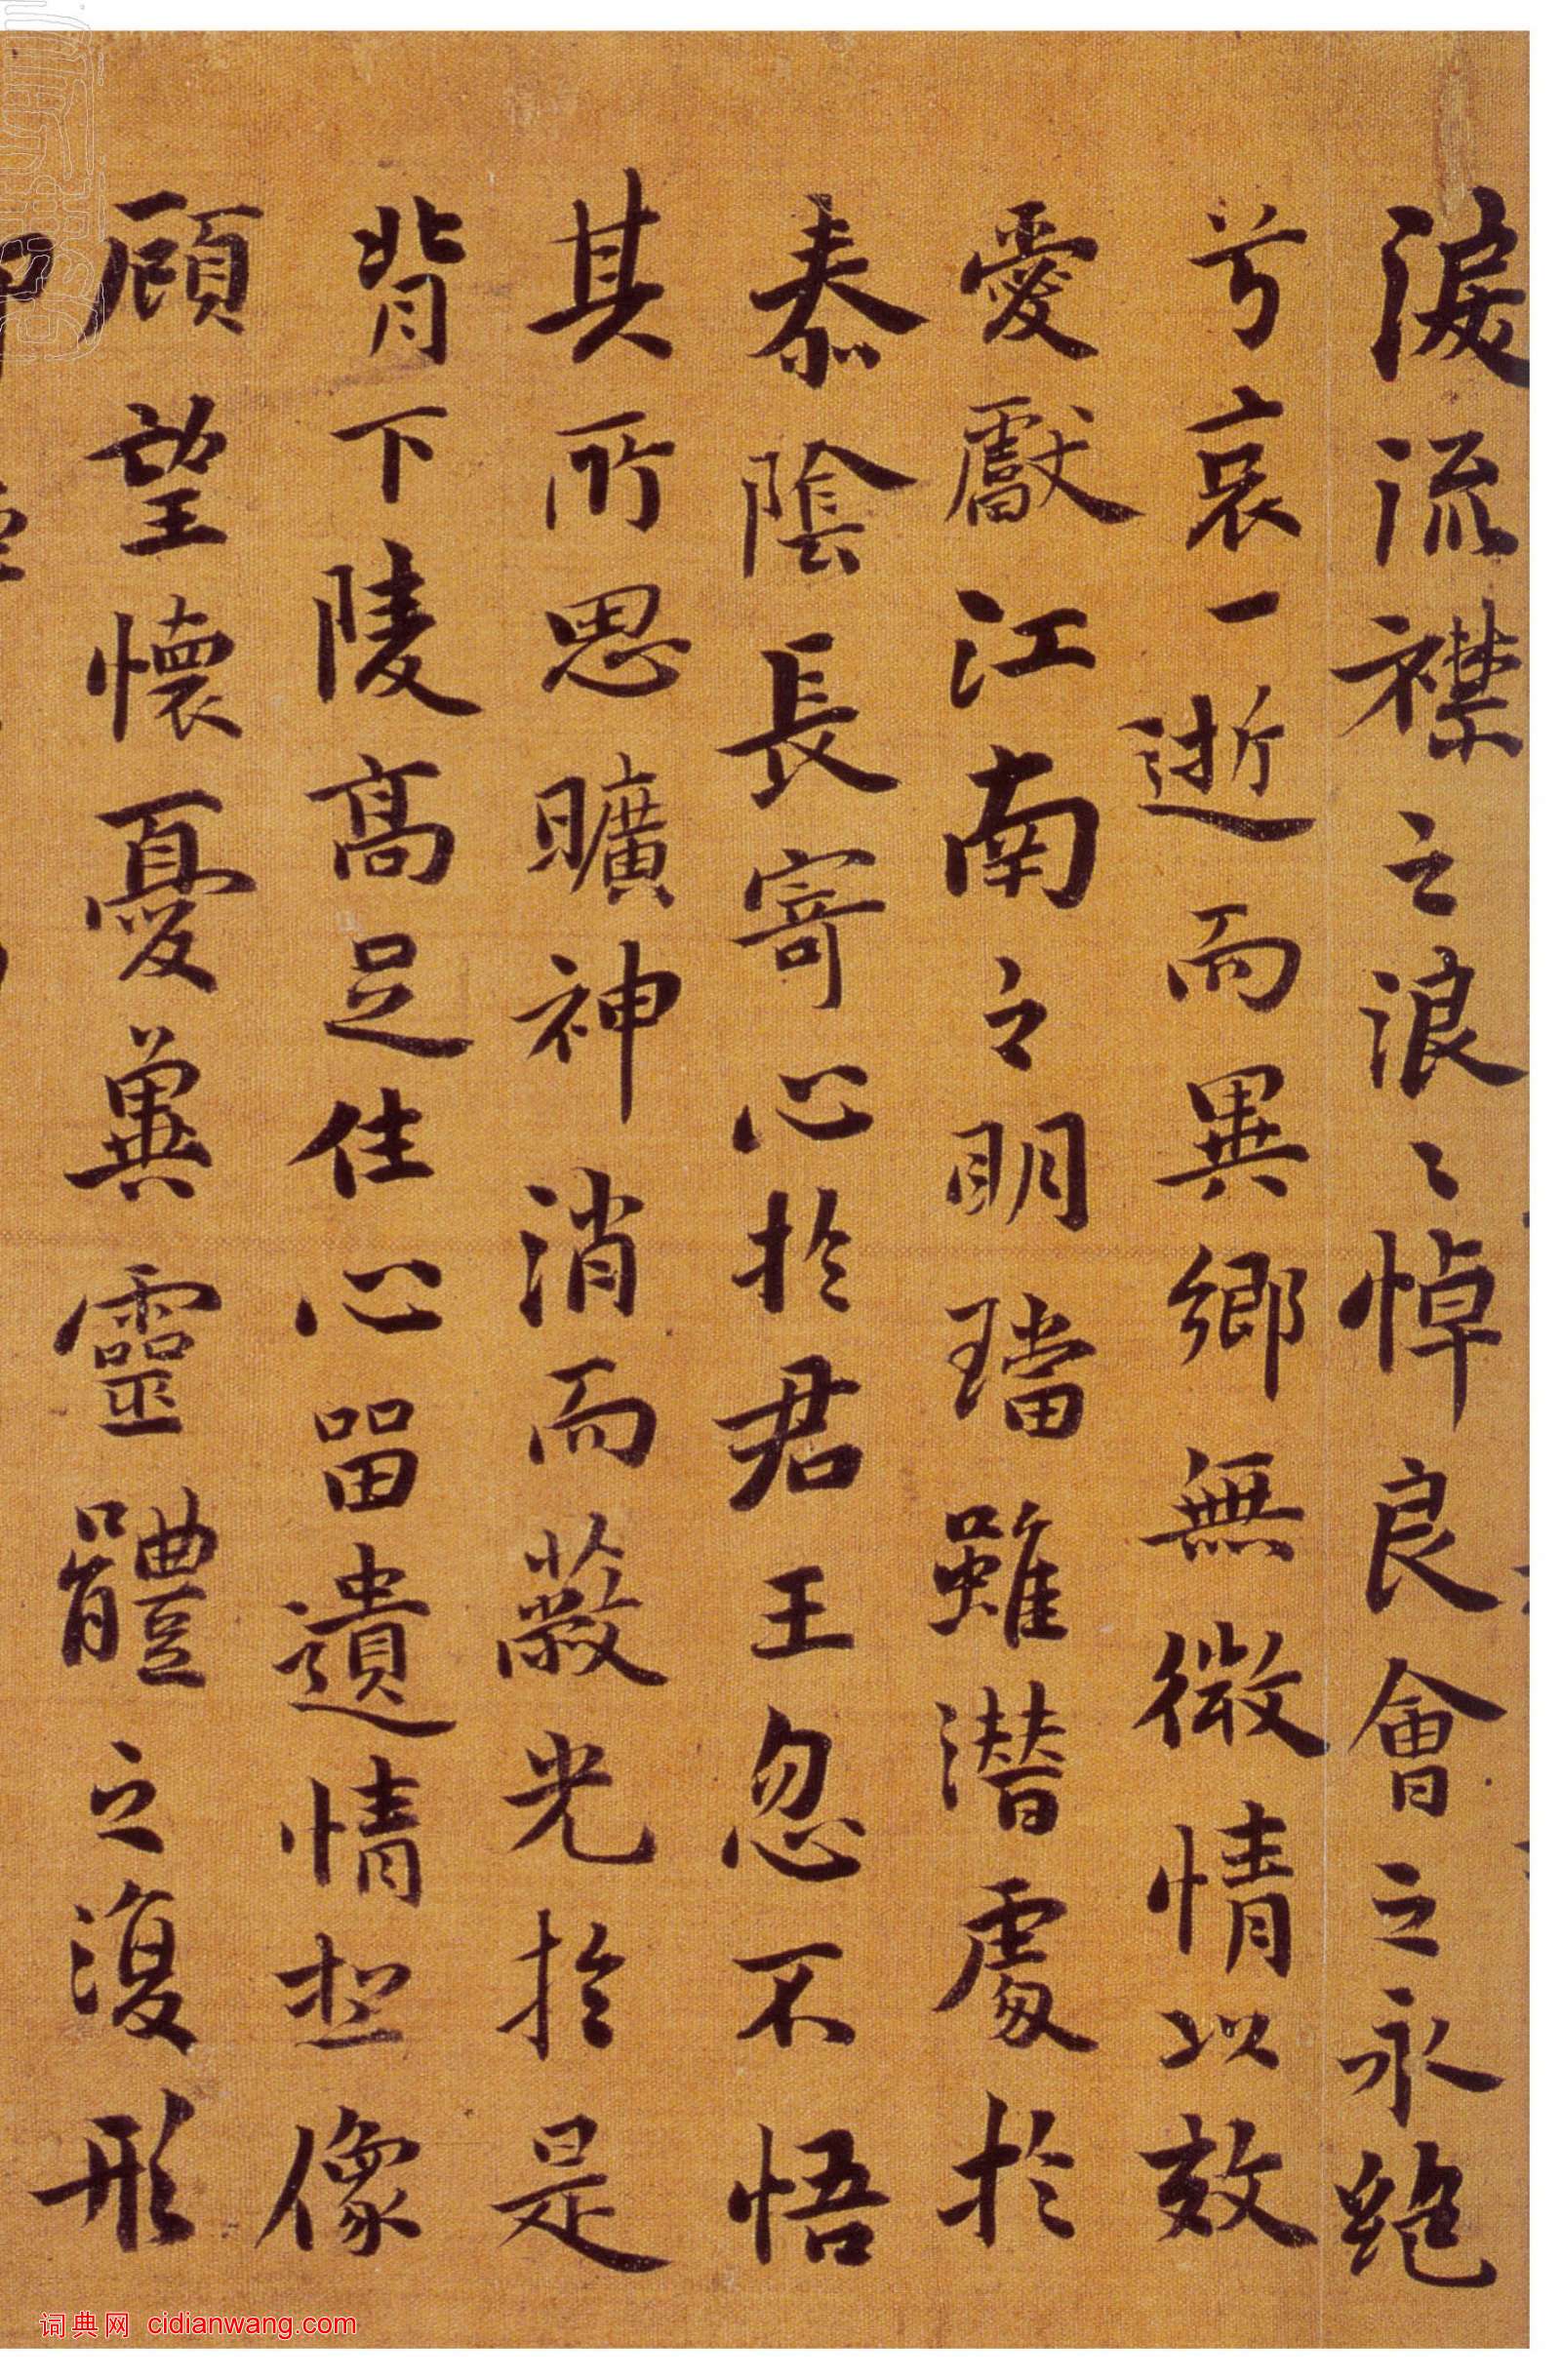 淚流襟之浪〻悼良會之永絕
兮哀一逝而異鄉無微情以效
愛獻江南之明璫雖潛處於
泰陰長寄心於君王忽不悟
其所思曠神消而蔽光於是
背下陵高足住心留遺情想像
顧望懷憂冀靈體之復形
词典网 cidianwang.com